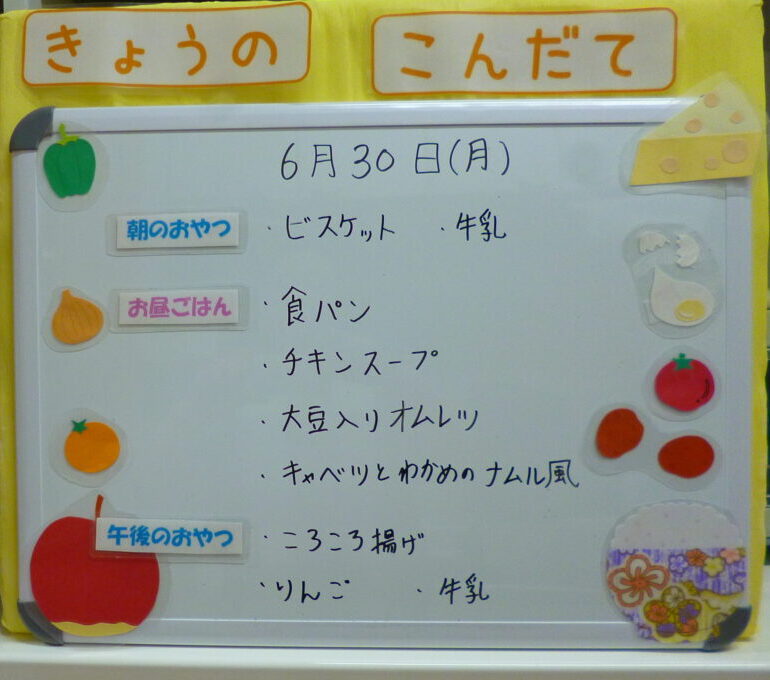 きょうの こんだて
6月30日(月)
朝のおやつ ・ビスケット ・牛乳
お昼ごはん ・食パン
・チキンスープ
・大豆入りオムレツ
・キャベツとわかめのナムル風
午後のおやつ ・ころころ揚げ
・りんご ・牛乳